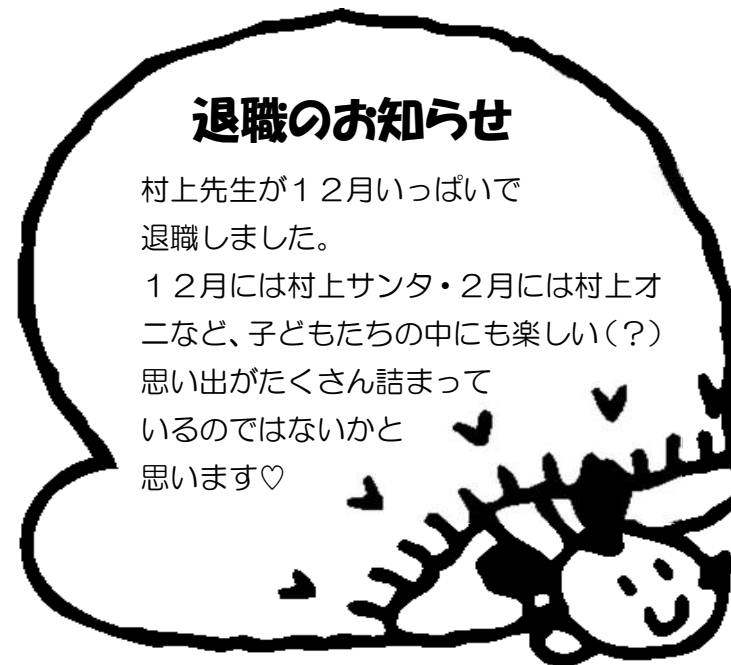 退職のお知らせ
村上先生が１２月いっぱいで
退職しました。
１２月には村上サンタ・２月には村上オ
ニなど、子どもたちの中にも楽しい（？）
思い出がたくさん詰まって
いるのではないかと
思います♡